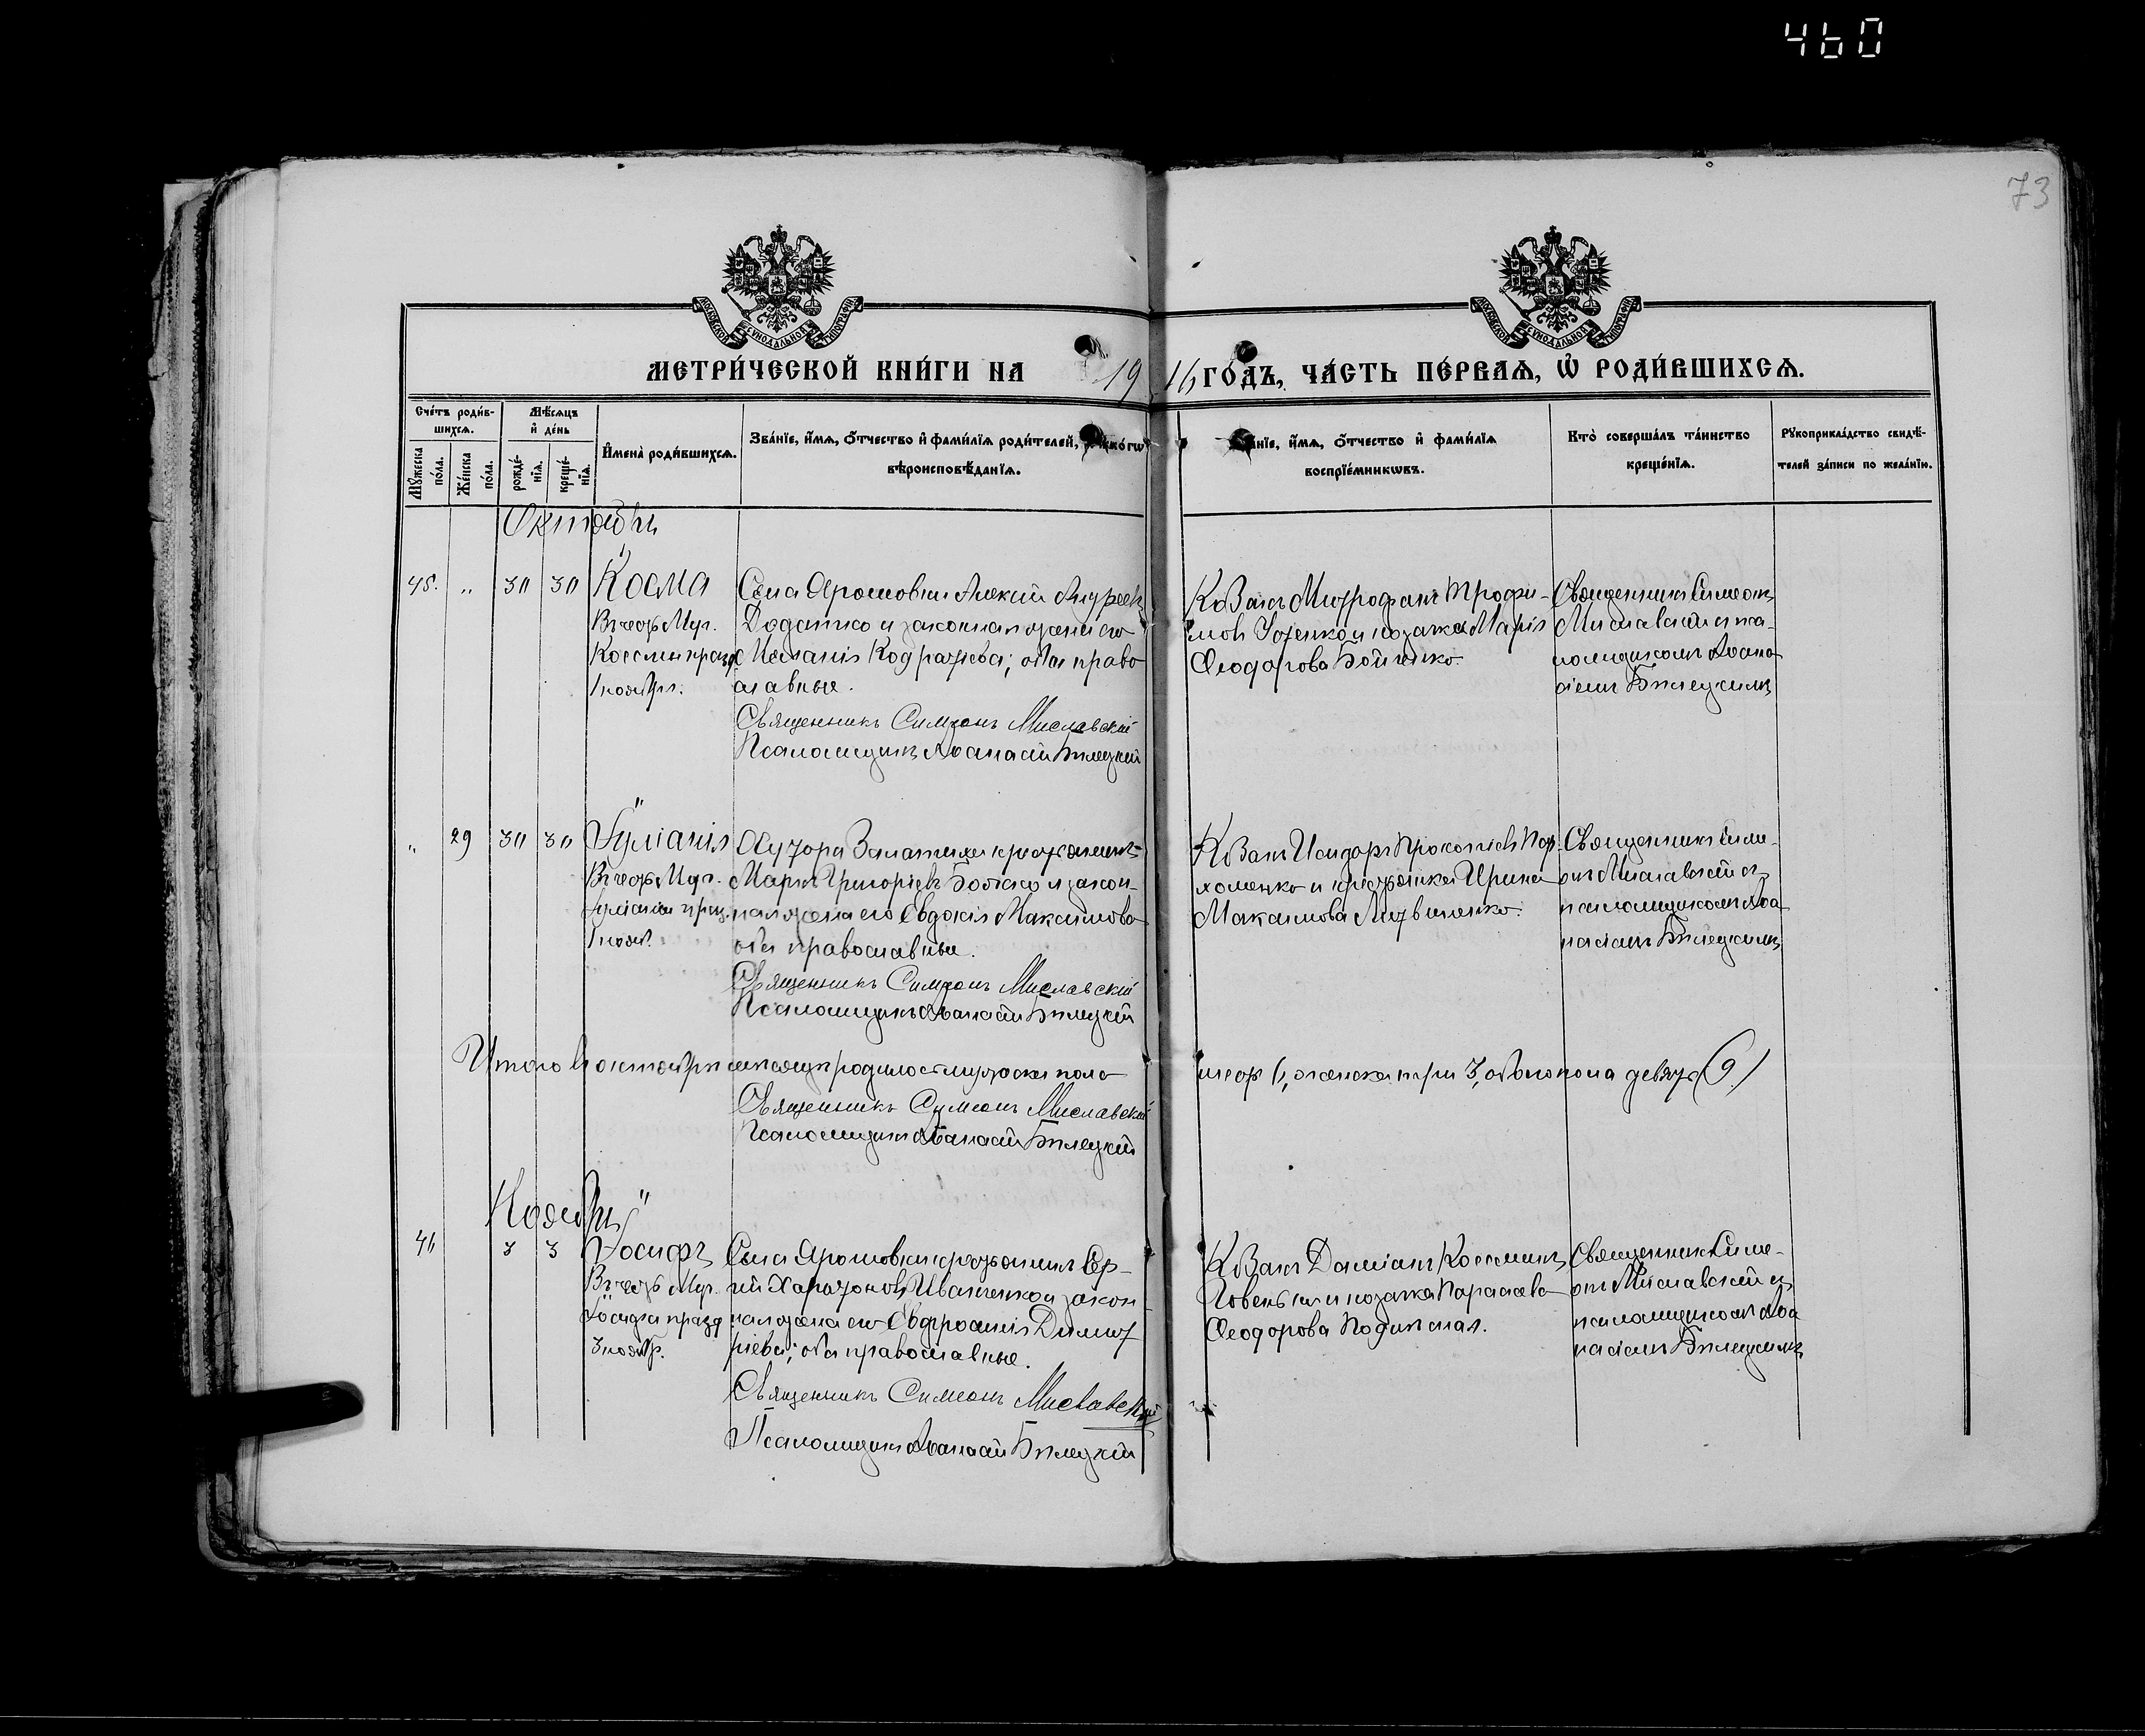 460
73
МОСКОВСКОЙ СѴНОДАЛЬНОЙ ТИПОГРАФІИ
МОСКОВСКОЙ СѴНОДАЛЬНОЙ ТИПОГРАФІИ
МЕТРИ́ЧЕСКОЙ КНИ́ГИ НА 1916 ГО́ДЪ, ЧА́СТЬ ПЕ́РВАЯ, Ѡ҆ РОДИ́ВШИХСЯ.
Сче́тъ роди́в-
шихся.
Мꙋ́жеска по́ла.
Же́нска по́ла.
Мѣ́сяцъ и҆ де́нь
рожде́-нїя.
креще́-нїя.
И҆мена̀ роди́вшихся.
Зва́нїе, и҆́мя, ѻ҆́тчество и҆ фами́лїя роди́телей, и҆ како́гѡ
вѣроисповѣ́данїя.
Зва́нїе, и҆́мя, ѻ҆́тчество и҆ фами́лїя
воспрїе́мникѡвъ.
Кто̀ соверша́лъ та́инство
креще́нїя.
Рꙋкоприкла́дство свидѣ́-
телей за́писи по жела́нїю.
Октябрь
45. " 30 30 Косма
Въ честь Муч.
Космы празд.
1 ноября.
Села Ярошовки Алексій Андреевъ
Додатко и законная жена его
Меланія Кодратьева; оба право
славные.
Священникъ Симеонъ Миславскій
Псаломщикъ Аѳанасій Бѣлецкій
Козакъ Митрофанъ Трофи-
мовъ Усенко и козачка Марія
Ѳеодорова Бойченко.
Священникъ Симеонъ
Миславскій съ пса-
ломщикомъ Аѳана
сіемъ Бѣлецкимъ
" 29 30 30 Іуліанія
Въ честь Муч.
Іуліаніи празд.
1 нояб.
Хутора крестьянинъ
Маркъ Григоріевъ Бойко и закон-
ная жена его Евдокія Максимова
оба православные.
Священникъ Симеонъ Миславскій
Псаломщикъ Аѳанасій Бѣлецкій
Козакъ Исидоръ Прокопіевъ Пар-
хоменко и крестьянка Ирина
Максимова Литвиненко.
Священникъ Симе-
онъ Миславскій съ
псаломщикомъ Аѳа
насіемъ Бѣлецкимъ
Итого въ октябрѣ мѣсяцѣ родилось мужеска пола шесть 6, женска три 3, обоего пола девять (9.)
Священникъ Симеонъ Миславскій
Псаломщикъ Аѳанасій Бѣлецкій
Ноябрь
46 3 3 Іосифъ
Въ честь Муч.
Іосифа празд
3 ноябр.
Села Ярошовки крестьянинъ Сер-
гій Харитоновъ Иващенко и закон
ная жена его Евфросинія Димит
ріева; оба православные.
Священникъ Симеонъ Миславскій
Псаломщикъ Аѳанасій Бѣлецкій
Козакъ Даміанъ Косминъ
и козачка Параскева
Ѳеодорова
Священникъ Симе-
онъ Миславскій съ
псаломщикомъ Аѳа
насіемъ Бѣлецкимъ